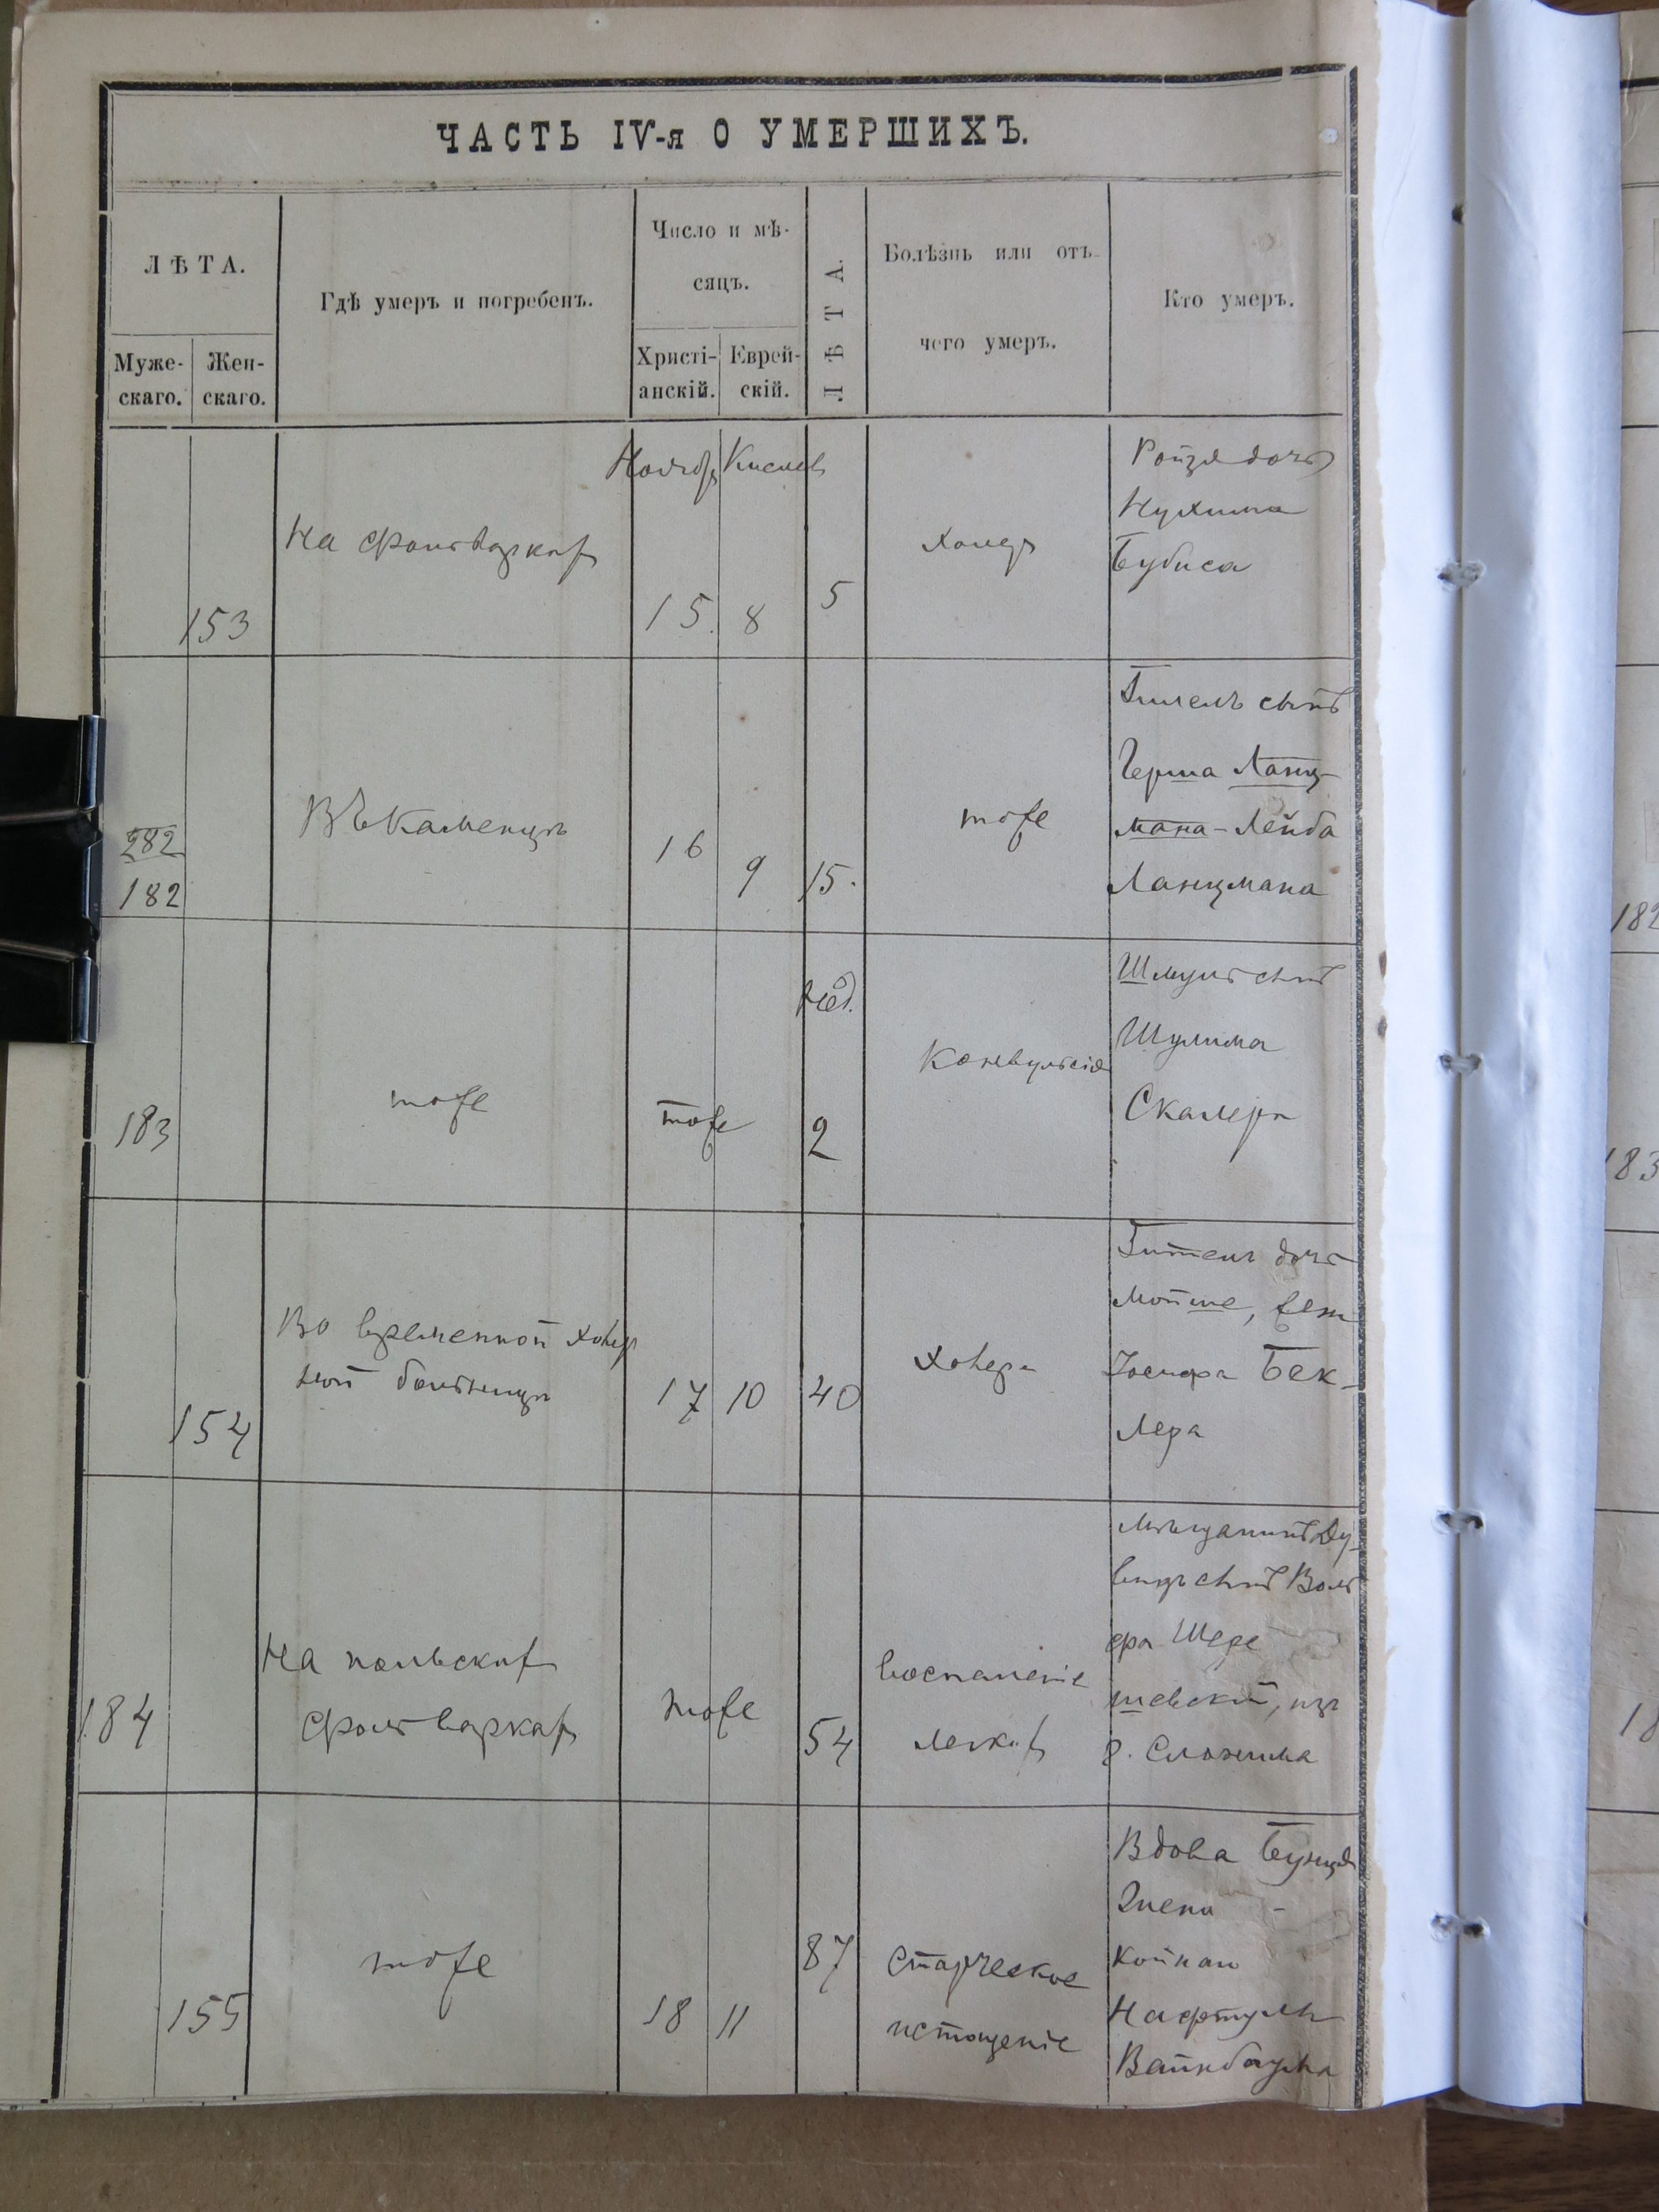 ЧАСТЬ IV-я О УМЕРШИХЪ.
ЛѢТА.
Муже-
скаго.
Жен-
скаго.
Гдѣ умеръ и погребенъ.
Число и мѣ-
сяцъ.
Христі-
анскій.
Еврей-
скій.
ЛѢТА.
Болѣзнь или отъ
чего умеръ.
Кто умеръ.
153
На фольваркахъ
Ноябрь
15.
Кислев
8
5
холера
Ройзя дочь
Нухима
Бубиса
282
182
Въ Каменцѣ
16
9
15.
тоже
сынъ
Герша Ланц-
мана - Лейба
Ланцмана
183
тоже
тоже
Нед.
2
Конвульсія
Шмуль сынъ
Шулима
Скалера
154
Во временной холер
ной больницѣ
17
10
40
Холера
Гитель дочь
Мойше, жен
Іосифа Бек-
лера
184
На польских
фольваркахъ
тоже
54
воспаленіе
легких
Мѣщанинъ Ду-
видъ сынъ Воль
фа Шере
шевскій, изъ
г. Слонима
155
тоже
18
11
87
старческое
истощеніе
Вдова Бунця
Койхаш
Нафтула
Вайнбаума
182
183
18